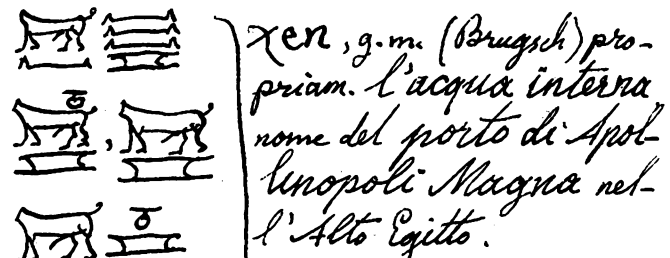 χen, g.m. (Brugsch) pro-
priam. l'acqua interna
nome del porto di Apol-
linopoli Magna nel-
l'Alto Egitto.